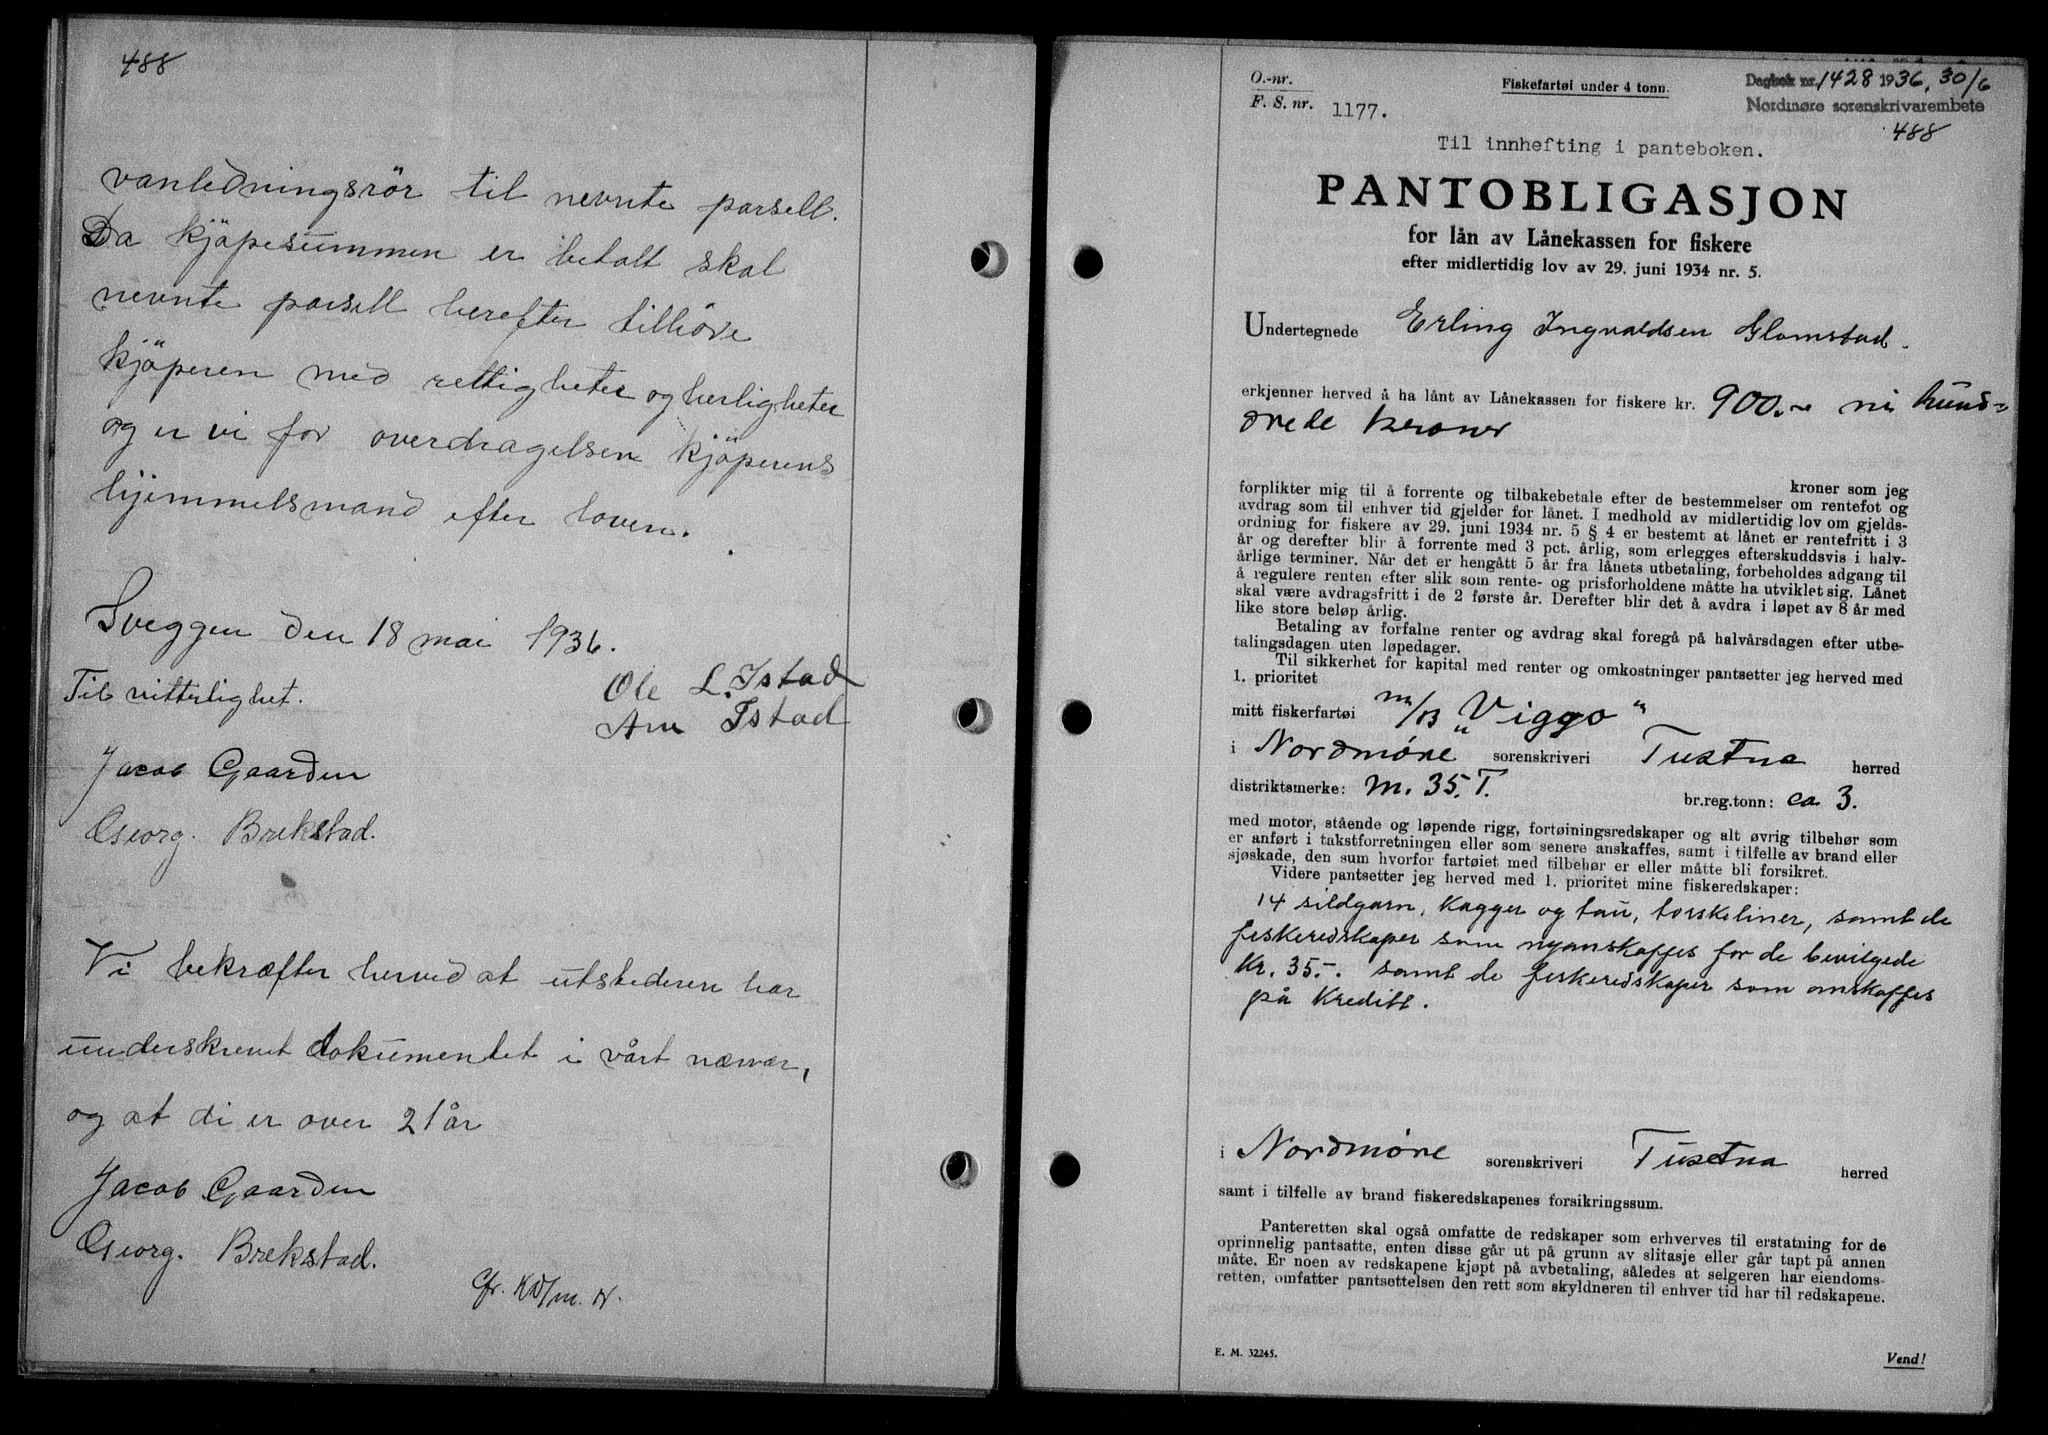 488
vanledningsrör til nevnte parsell.
Da kjöpesummen er betalt skal
nevnte parsell herefter tilhöre
kjöperen med rettigheter og herligheter
og er vi for overdragelsen kjöperens
hjemmelsmand efter loven.
Sveggen den 18 mai 1936.
Til vitterlighet.
Ole L. Istad
Istad
Jacob Gaarden
Georg. Brekstad.
Vi bekræfter herved at utstederen har
underskrevet dokumentet i vårt nærvær,
og at di er over 21 år
Jacob Gaarden
Georg. Brekstad.
O.-nr.
F. S. nr. 1177.
Fiskefartøi under 4 tonn.
Dagbok nr. 1428 1936, 30/6
Nordmøre sorenskrivarembete
488
Til innhefting i panteboken.
PANTOBLIGASJON
for lån av Lånekassen for fiskere
efter midlertidig lov av 29. juni 1934 nr. 5.
Undertegnede Erling Ingvaldsen Glomstad.
erkjenner herved å ha lånt av Lånekassen for fiskere kr. 900.- ni hund=
drede kroner
kroner som jeg
forplikter mig til å forrente og tilbakebetale efter de bestemmelser om rentefot og
avdrag som til enhver tid gjelder for lånet. I medhold av midlertidig lov om gjelds-
ordning for fiskere av 29. juni 1934 nr. 5 § 4 er bestemt at lånet er rentefritt i 3
år og derefter blir å forrente med 3 pct. årlig, som erlegges efterskuddsvis i halv-
årlige terminer. Når det er hengått 5 år fra lånets utbetaling, forbeholdes adgang til
å regulere renten efter slik som rente- og prisforholdene måtte ha utviklet sig. Lånet
skal være avdragsfritt i de 2 første år. Derefter blir det å avdra i løpet av 8 år med
like store beløp årlig.
Betaling av forfalne renter og avdrag skal foregå på halvårsdagen efter utbe-
talingsdagen uten løpedager.
Til sikkerhet for kapital med renter og omkostninger pantsetter jeg herved med
1. prioritet
mitt fiskerfartøi m/B „Viggo“
i Nordmøre sorenskriveri Tustna herred
distriktsmerke: M. 35. T. br.reg.tonn: ca 3.
med motor, stående og løpende rigg, fortøiningsredskaper og alt øvrig tilbehør som
er anført i takstforretningen eller som senere anskaffes, samt i tilfelle av brand eller
sjøskade, den sum hvorfor fartøiet med tilbehør er eller måtte bli forsikret.
Videre pantsetter jeg herved med 1. prioritet mine fiskeredskaper:
14 sildgarn, kagger og tau, torskeliner, samt de
fiskeredskaper som nyanskaffes for de bevilgede
Kr. 35.-. samt de fiskeredskaper som anskaffes
på kreditt.
i Nordmøre sorenskriveri Tustna herred
samt i tilfelle av brand fiskeredskapenes forsikringssum.
Panteretten skal også omfatte de redskaper som erhverves til erstatning for de
oprinnelig pantsatte, enten disse går ut på grunn av slitasje eller går tapt på annen
måte. Er noen av redskapene kjøpt på avbetaling, således at selgeren har eiendoms-
retten, omfatter pantsettelsen den rett som skyldneren til enhver tid har til redskapene.
E. M. 32245.
Vend!